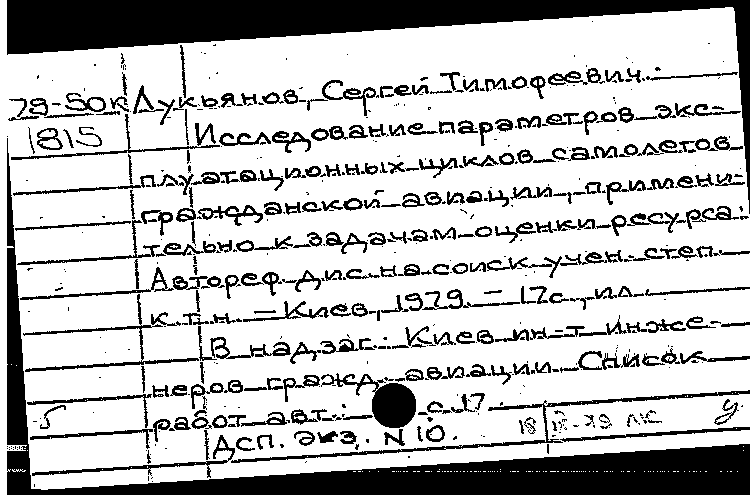 79-50к Лукьянов, Сергей Тимофеевич.
1815 Исследование параметров экс-
плуатационных циклов самолетов
гражданской авиации, примени-
тельно к задачам оценки ресурса:
Автореф. дис. на соиск. учен. степ.
к.т.н. - Киев, 1979. - 17с., ил.
В надзаг.: Киев. ин-т инже-
неров гражд. авиации. Список
работ авт.: с. 17.
5
ДСП. Экз. N 10.
18
у